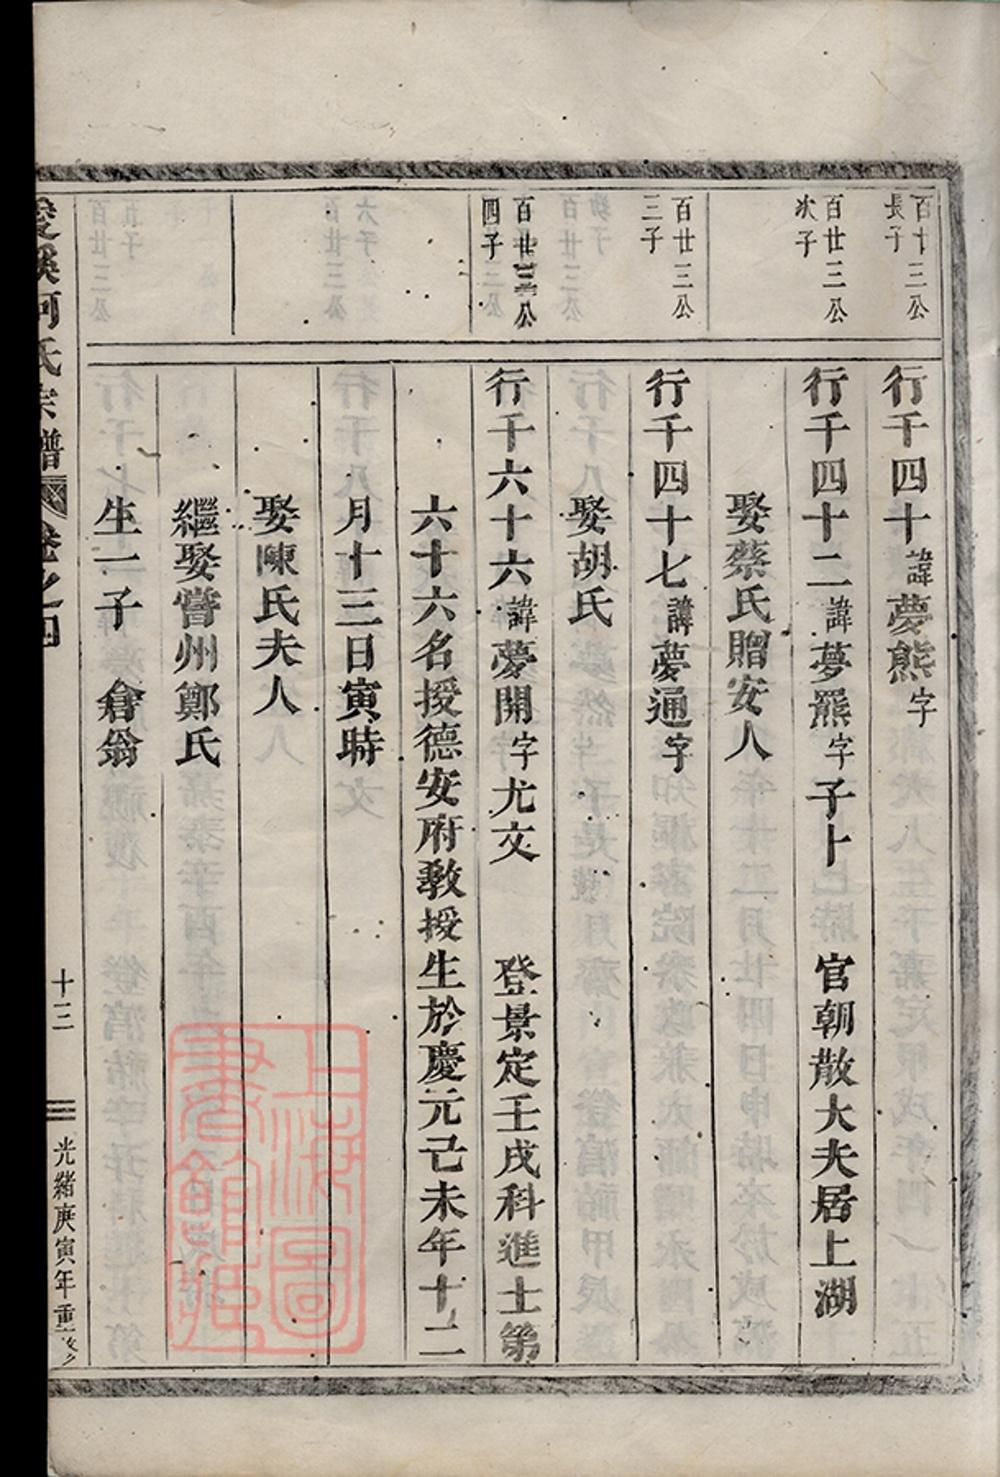 百廿三公
長子
行千四十諱夢熊字
百廿三公
次子
行千四十二諱夢羆字子卜 官朝散大夫居上湖
娶蔡氏贈安人
百廿三公
三子
行千四十七諱夢通字
娶胡氏
百廿三公
四子
行千六十六諱夢開字尤文 登景定壬戌科進士第
六十六名授德安府教授生於慶元己未年十二
月十三日寅時
娶陳氏夫人
繼娶嘗州鄭氏
生一子 倉翁
溪何氏宗譜 卷之四 十三 光緒庚寅年重修
上海圖
書館藏